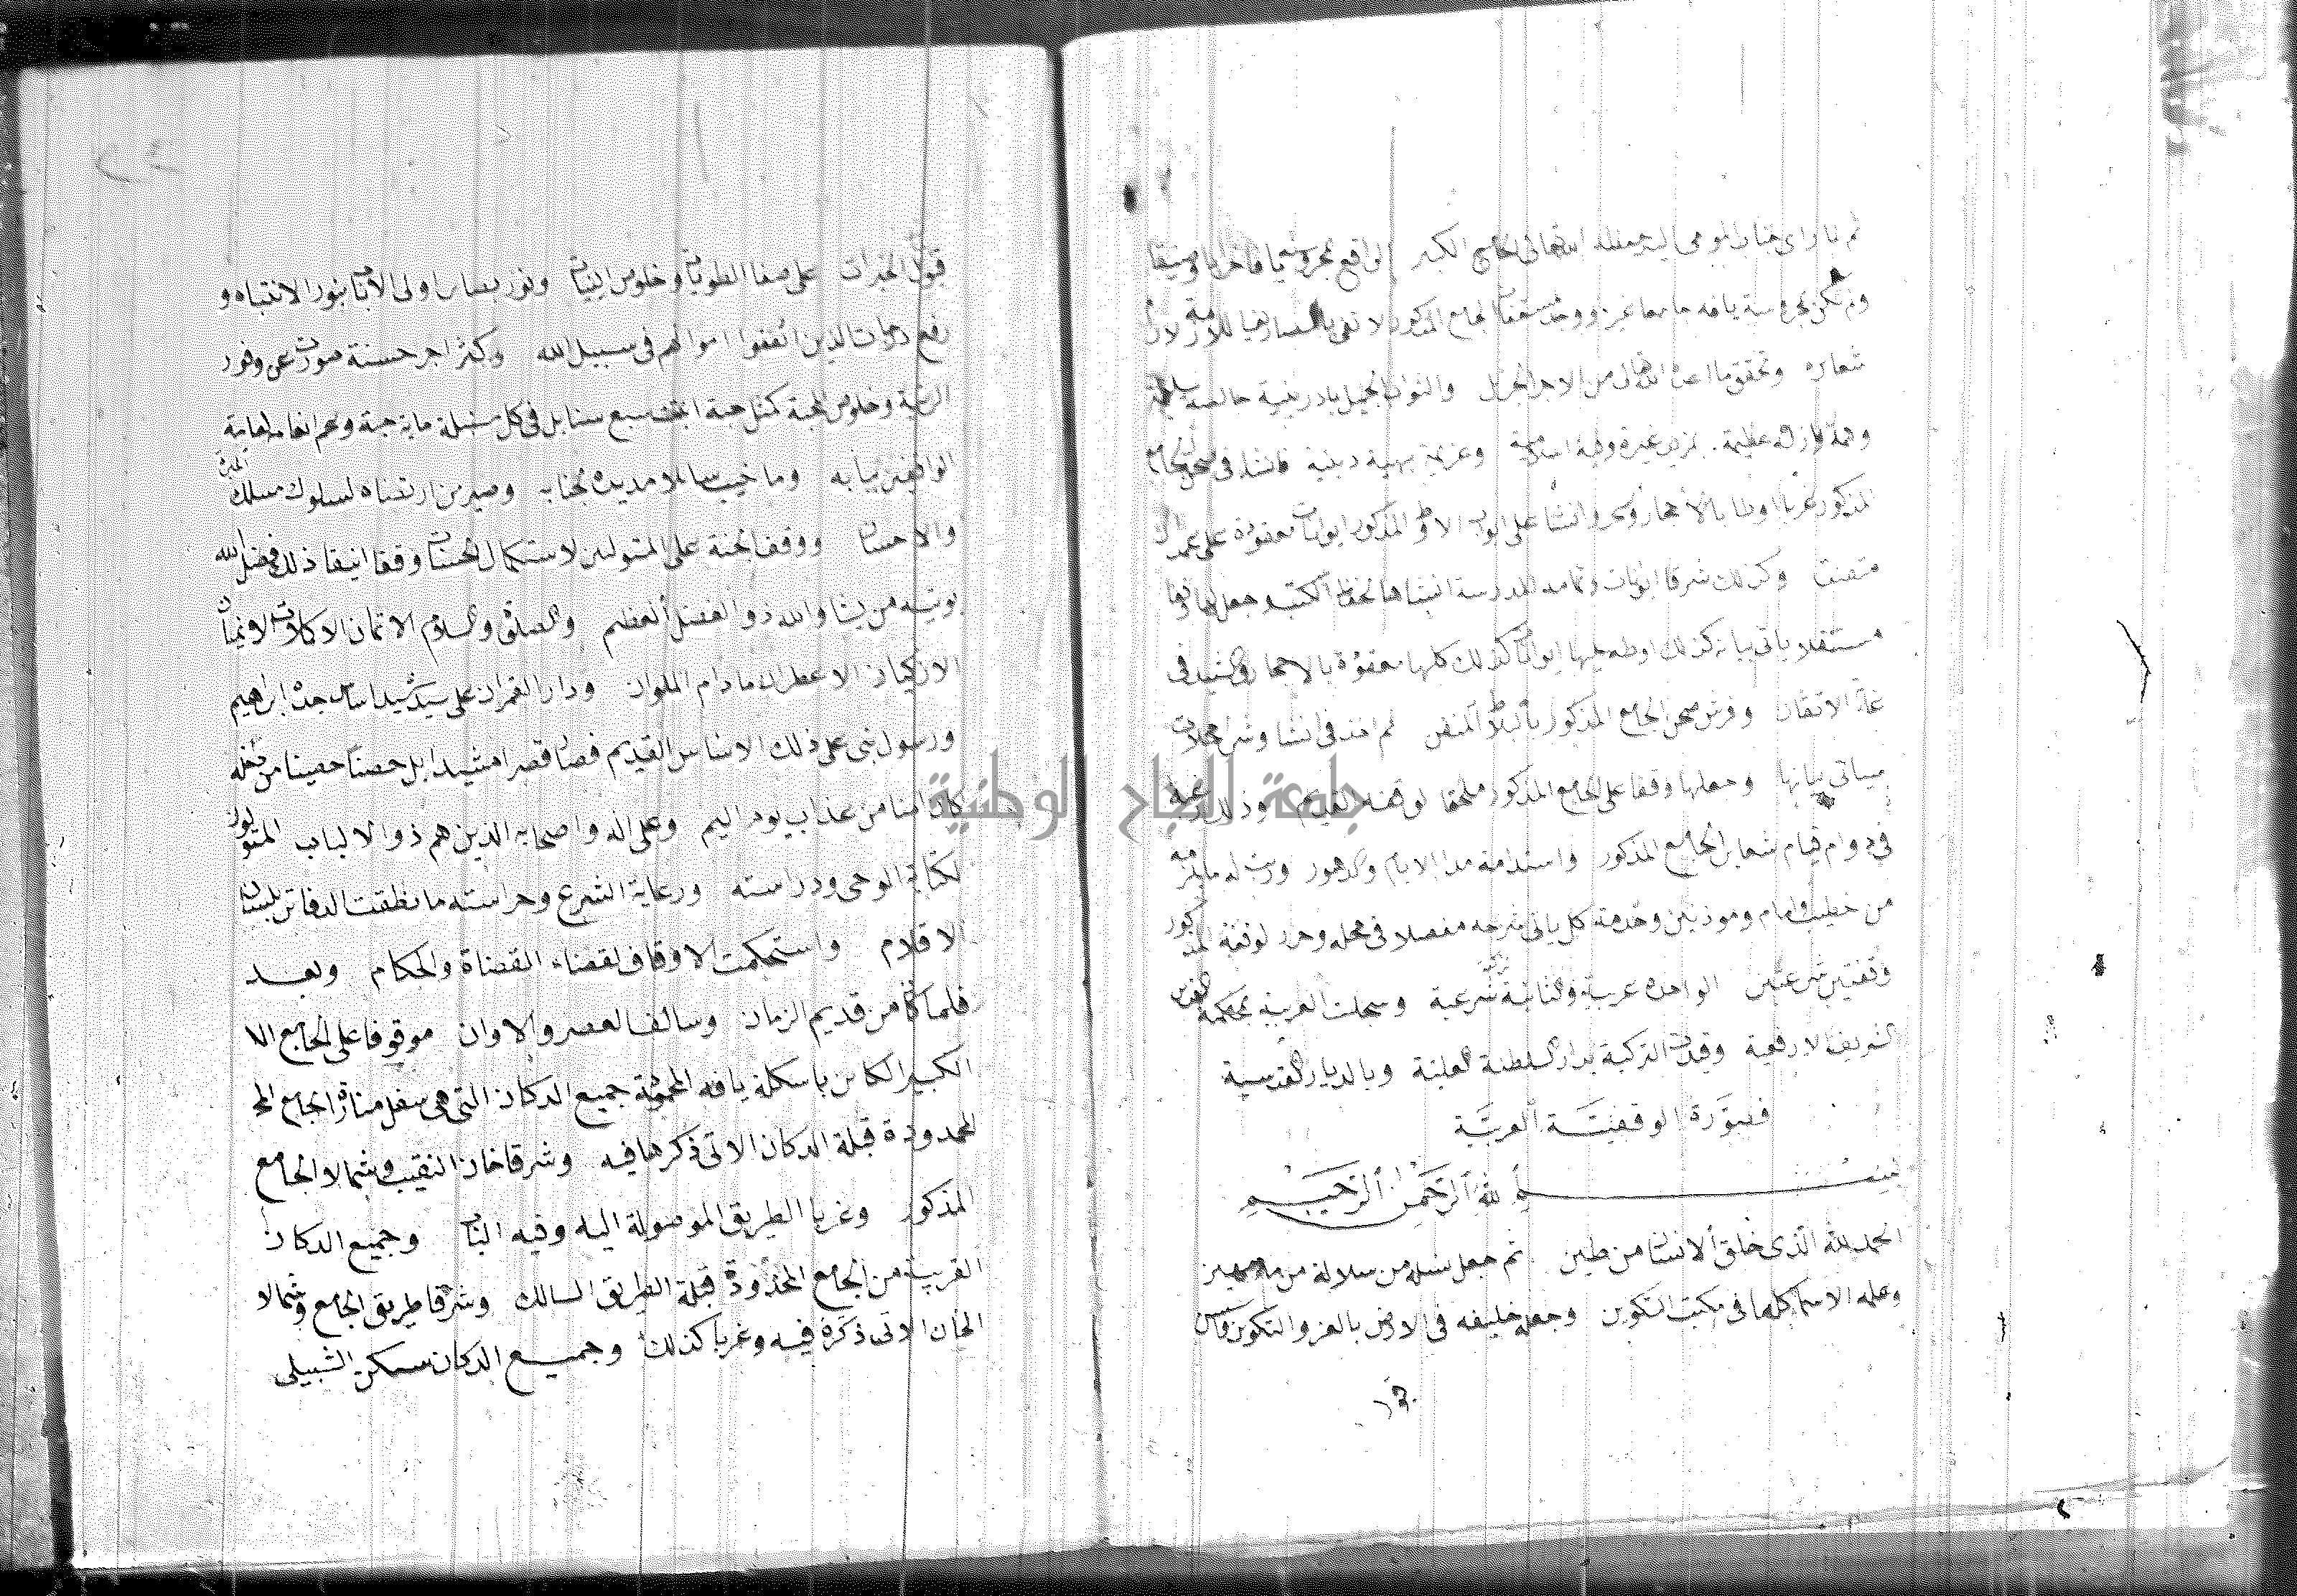 ثم لما راى جناب المومى اليه حفظه الله تعالى الجامع الكبير الواقع بمحروسة يافا
ولم يكن بمحروسة يافه جامعا غيره ووجد مسقفات الجامع المذكور لا تفى بالمصارف
شعايره وتحقق ما اعده الله تعالى من الاجر الجزيل والثواب الجميل بادر بنية خالصة
وهمة عظيمة بمزيد غيرة وعزيمة بهية دينية فانشاء فى صحن الجامع
المذكور غربا اوطا بالأحجار وانشا على ابواب المذكور ايوانات معقودة على عمد
وكذلك شرقا ايوانات وتمامه المدرسة انشاها لحفظ الكتب وجعل لها وقفا
مستقلا ياتى بيانه كذلك ايوانات كذلك كلها معقودة بالاحجار والشيد فى
غاية الاتقان وفرش صحن الجامع المذكور بالبلاط المتقن ثم اخذ فى انشا وشرا محلات
سياتى بيانها وجعلها وقفا على الجامع المذكور ملحقا لوقفه القديم وذلك رغبة
فى دوام قيام شعاير الجامع المذكور واستدامة مدا الايام والدهور ورتب له ما يلزمه
من خطيب وامام وموذنين وخدمة كل ياتى شرحه مفصلا فى محله وحرر لوقفه المذكور
وقفتين شرعيتين الواحدة عربية والثانية شرعية وسجلت العربية بمحكمة القدس
الشريف الارفعية وقيدت التركية بدار السلطنة العلية وبالديار القدسية
فصورة الوقفية العربية
بسم الله الرحمن الرحيم
الحمد لله الذى خلق الانسان من طين ثم جعل نسله من سلالة من ماء مهين
وعلمه الاسما كلها فى مكتب التكوين وجعله خليفه فى الارض بالعز والتكوين
قبول الخيرات على صفا الطويات وخلوص النيات ونور بصاير اولى الالباب بنور الانتباه و
رفع درجات الذين انفقوا اموالهم فى سبيل الله وكثر اجر حسنة صدرت عن وفور
الرغبة وخلوص المحبة كمثل حبة انبتت سبع سنابل فى كل سنبلة ماية حبة وعم انعامه لعامة
الواقفين ببابه وما خيب سايلا مد يده لجنابه وصير من ارتضاه لسلوك مسلك الخير
والاحسان ووقف الجنة على المتولين لاستكمال الحسنات وقفا انيقا ذلك فضل الله
يوتيه من يشا والله ذو الفضل العظيم والصلاة والسلام الاتمان الاكملان الانميان
الازكيان الاعطران ما دام الملوان ودار القمران على سيد شيد اساس جده ابراهيم
ورسول بنى على ذلك الاساس القديم فصار قصرا مشيدا بل حصنا حصينا من دخله
كان امنا من عذاب يوم اليم وعلى اله واصحابه الذين هم ذوا الالباب
لكتابة الوحى ودراسته ورعاية الشرع وحراسته ما نطقت الدفاتر بلسان
الاقلام واستحكمت الاوقاف لقضاء القضاة والحكام وبعد
فلما كان من قديم الزمان وسالف العصر والاوان موقوفا على الجامع الا
الكبير الكاين باسكلة يافه المحمية جميع الدكان التى هى سفل منارة الجامع المح
المحدودة قبلة الدكان الاتى ذكرها فيه وشرقا خان النقيب وشمالا الجامع
المذكور وغربا الطريق الموصولة اليه وفيه الباب وجميع الدكان
القريب من الجامع المحدودة قبلة الطريق السالك وشرقا طريق الجامع وشمالا
الخان الاتى ذكره فيه وغربا كذلك وجميع الدكان سكن الشبيلى
جامعة النجاح الوطنية